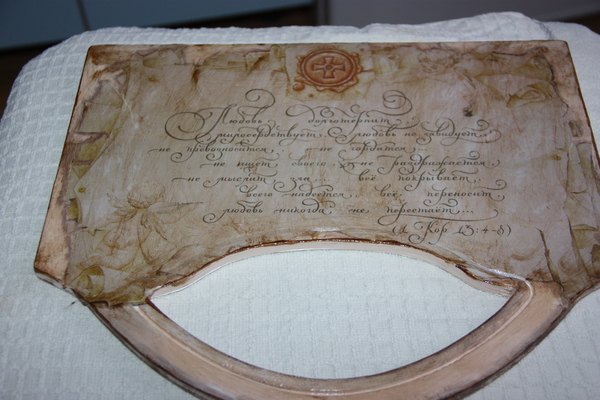 Любовь долготерпит,
милосердствует, любовь не завидует,
не превозносится, не гордится,
не ищет своего, не раздражается,
не мыслит зла... всё покрывает,
всего надеется, всё переносит,
любовь никогда не перестаёт...
(1 Кор 13:4-8)